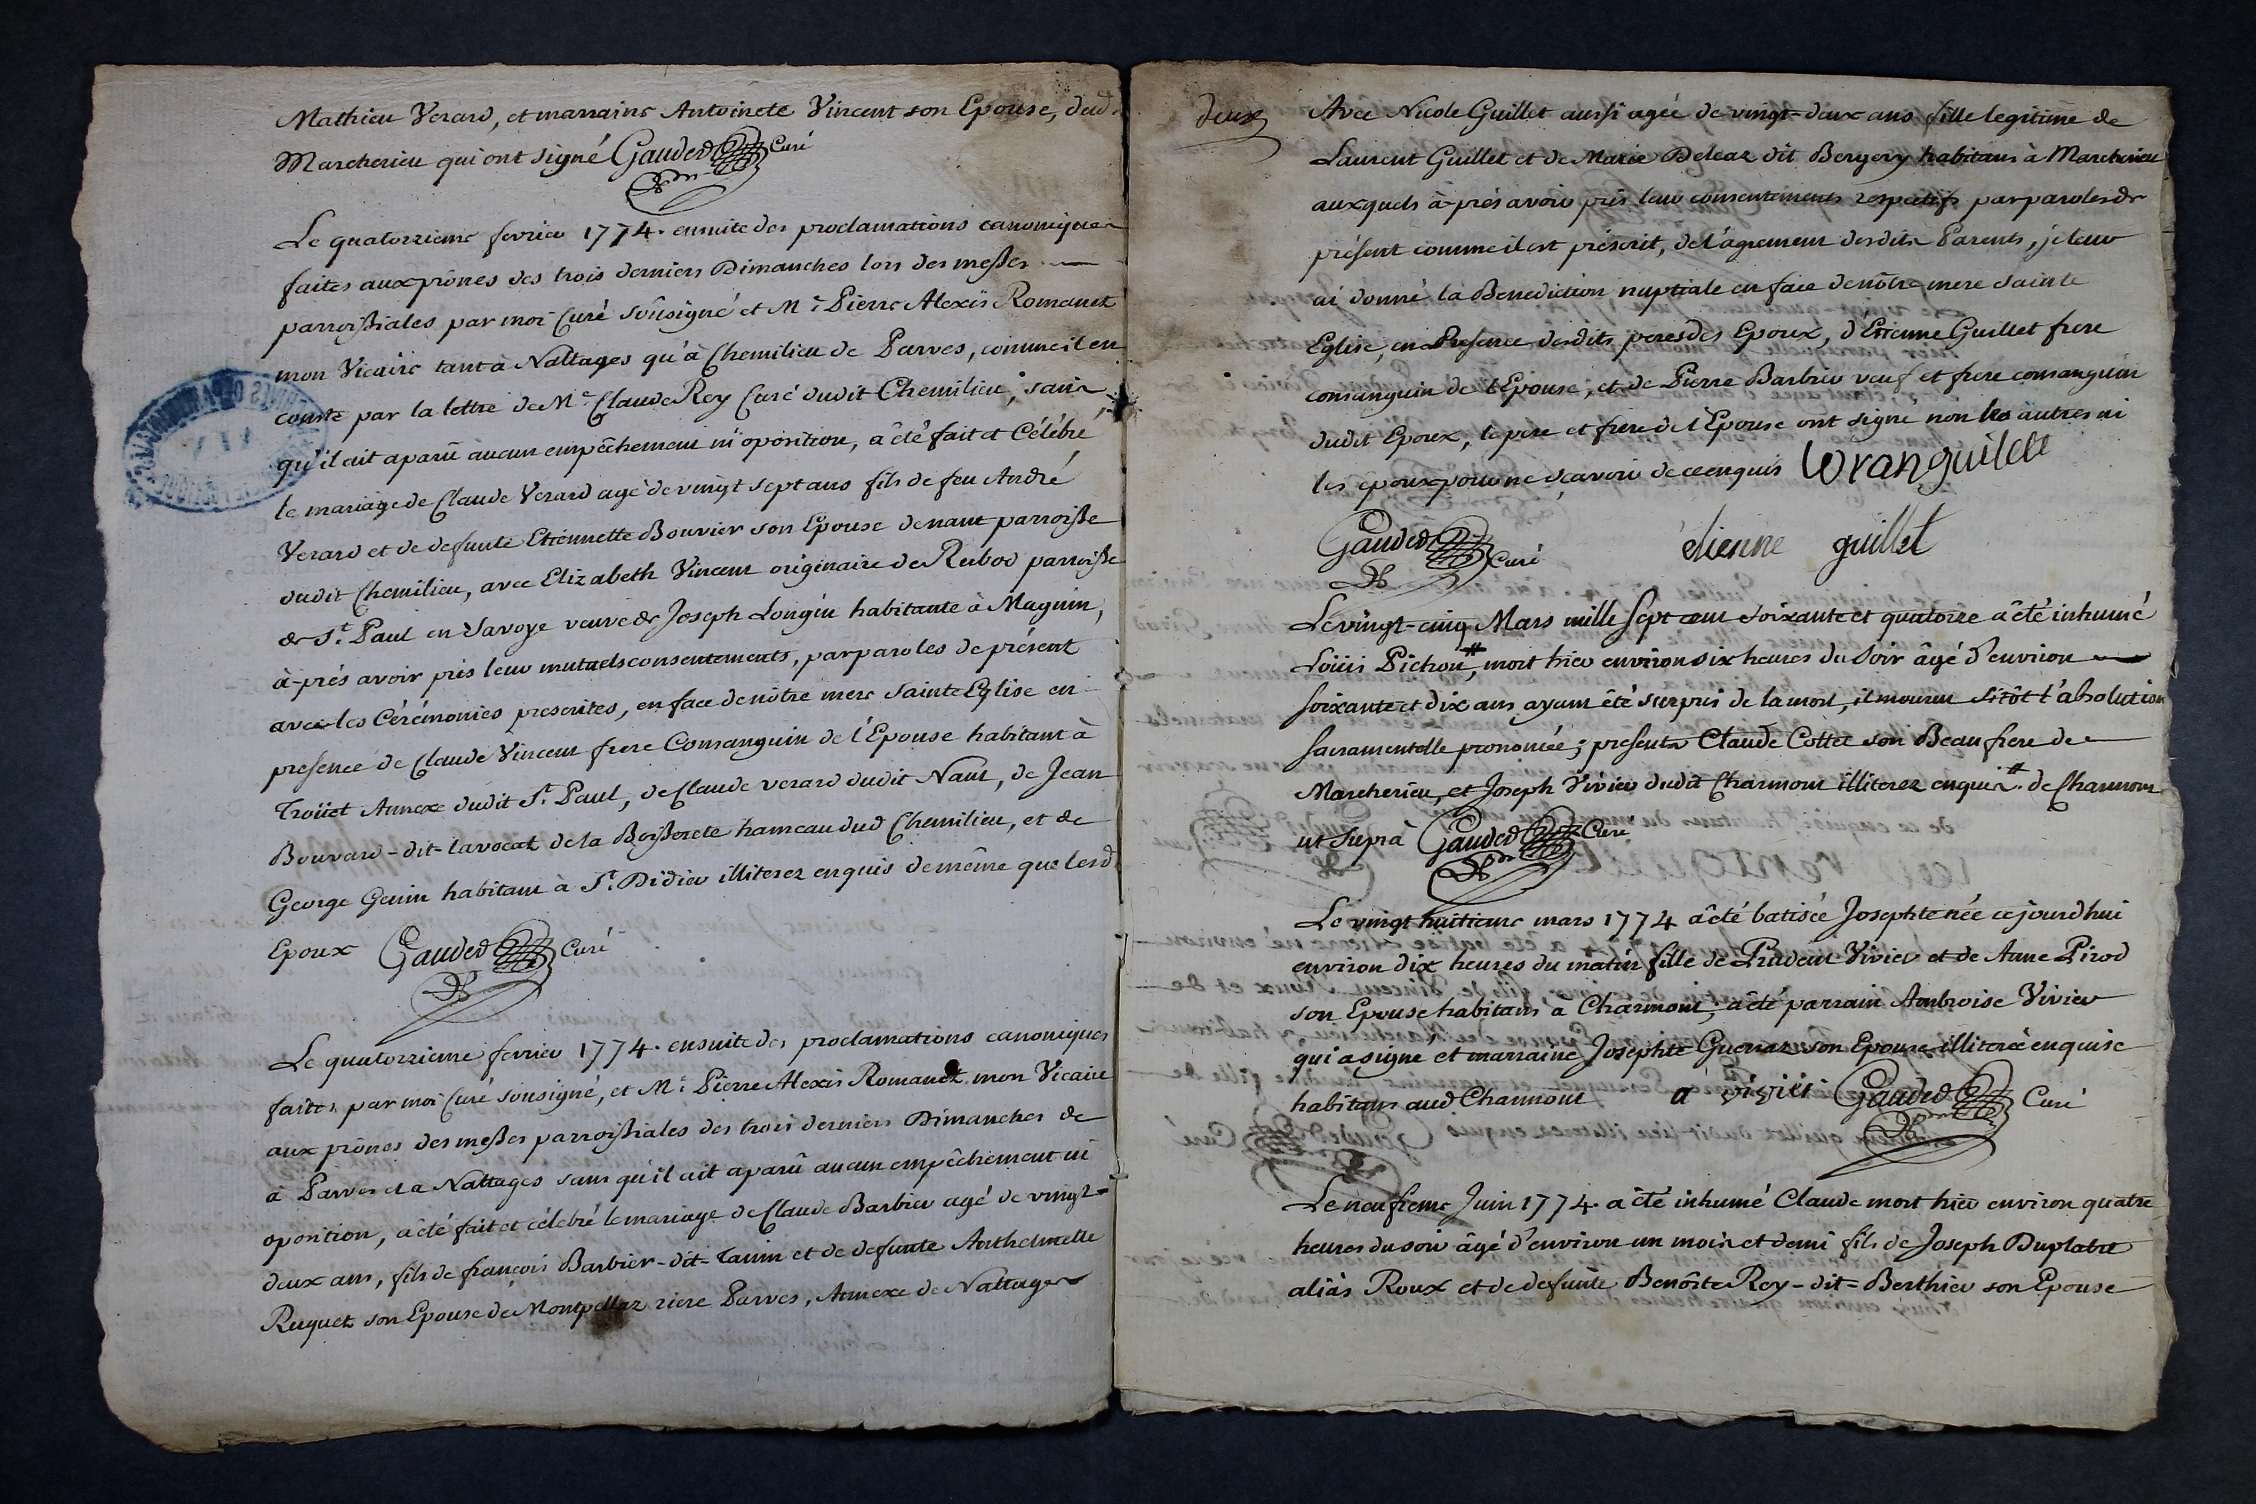 Mathieu Verard, et marraine Antoinete Vincent son Epouse, dud
Marcherieu qui ont signé Gauded Curé
Le quatorzieme fevrier 1774. ensuite des proclamations canoniques
faites aux prônes des trois derniers Dimanches lors des messes
parroissiales par moi Curé sousigné et Mr. Pierre Alexis Romanet
mon Vicaire tant à Nattages qu'à Chemilieu de Parves, comme il en
conste par la lettre de Me Claude Rey Curé dudit Chemilieu, sans
qu'il ait aparû aucun empêchement ni oposition, a êté fait et Célébré
le mariage de Claude Verard agé de vingt sept ans fils de feu André
Verard et de defunte Etiennette Bouvier son Epouse de nant parroisse
dudit Chemilieu, avec Elizabeth Vincent originaire de Rubod parroisse
de St. Paul en Savoye veuve de Joseph Longin habitante à Maguin,
à-prés avoir pris leur mutuels consentements, par paroles de présent
avec les Cérémonies prescrites, en face de nôtre mere sainte Eglise en
presence de Claude Vincent frere Consanguin de l'Epouse habitant à
Troüet Annexe dudit St. Paul, de Claude verard dudit Nant, de Jean
Bouvard-dit-lavocat de la Boisserete hameau dud Chemilieu, et de
George Genin habitant à St. Didier illiterez enquis de même que lesd
Epoux Gauded Curé
Le quatorzieme fevrier 1774. ensuite des proclamations canoniques
faites par moi Curé sousigné, et Mr. Pierre Alexis Romanet mon Vicaire
aux prônes des messes parroissiales des trois derniers Dimanches de
à Parves et a Nattages sans qu'il ait aparû aucun empêchement ni
oposition, a êté fait et célébré le mariage de Claude Barbier agé de vingt-
deux ans, fils de françois Barbier-dit-Tanin et de defunte Anthelmette
Ruquet son Epouse de Montpellaz riere Parves, Annexe de Nattages
deux
Avec Nicole Guillet aussi agée de vingt-deux ans fille legitime de
Laurent Guillet et de Marie Deleaz dit Bergery habitans à Marcherieu
auxquels à-prés avoir pris leur consentements respectifs par paroles de
présent comme il est préscrit, de l'agrement desdits Parents, je leur
ai donné la Benediction nuptiale en face de nôtre mere sainte
Eglise, en Presence desdits peres des Epoux, d'Etienne Guillet frere
consanguin de l'Epouse, et de Pierre Barbier veuf et frere consanguin
dudit Epoux, le pere et frere de l'Epouse ont signé non les autres ni
les époux pour ne sçavoir de ce enquis loranguilet
Gauded Curé étienne guillet
Le vingt-cinq Mars mille sept cent soixante et quatorze a êté inhumé
Loüis Pichon #, mort hier environ six heures du soir âgé d'environ
soixante et dix ans ayant êté surpris de la mort, il mourut sitôt l'absolution
sacramentelle prononcée; presents Claude Collet son Beau frere de
Marcherieu, et Joseph Vivier dudit Charmont illiterez enquis. # de Charmont
ut suprà Gauded Curé
Le vingt huitieme mars 1774 a êté batisée Josephte née cejourdhui
environ dix heures du matin fille de Prudent Vivier et de Anne Pirod
son Epouse habitans à Charmont, a êté parrain Ambroise Vivier
qui a signe et marraine Josephte Guerraz son Epouse illiterée enquise
habitans aud Charmont a vivier Gauded Curé
Le neufieme Juin 1774. a êté inhumé Claude mort hier environ quatre
heures du soir âgé d'environ un mois et demi fils de Joseph Duplatre
aliàs Roux et de defunte Benôite Rey-dit-Berthier son Epouse